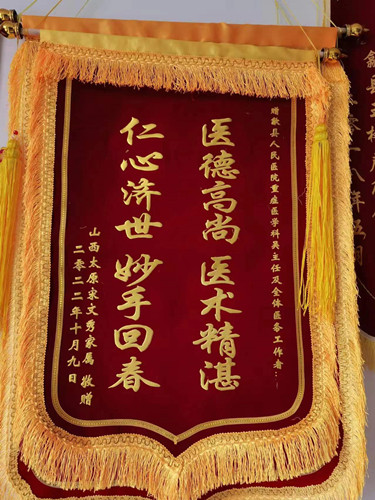 赠歙县人民医院重症医学科吴主任及全体医务工作者：
医德高尚 医术精湛
仁心济世 妙手回春
山西太原宋文秀家属 敬赠
二零二二年十月九日